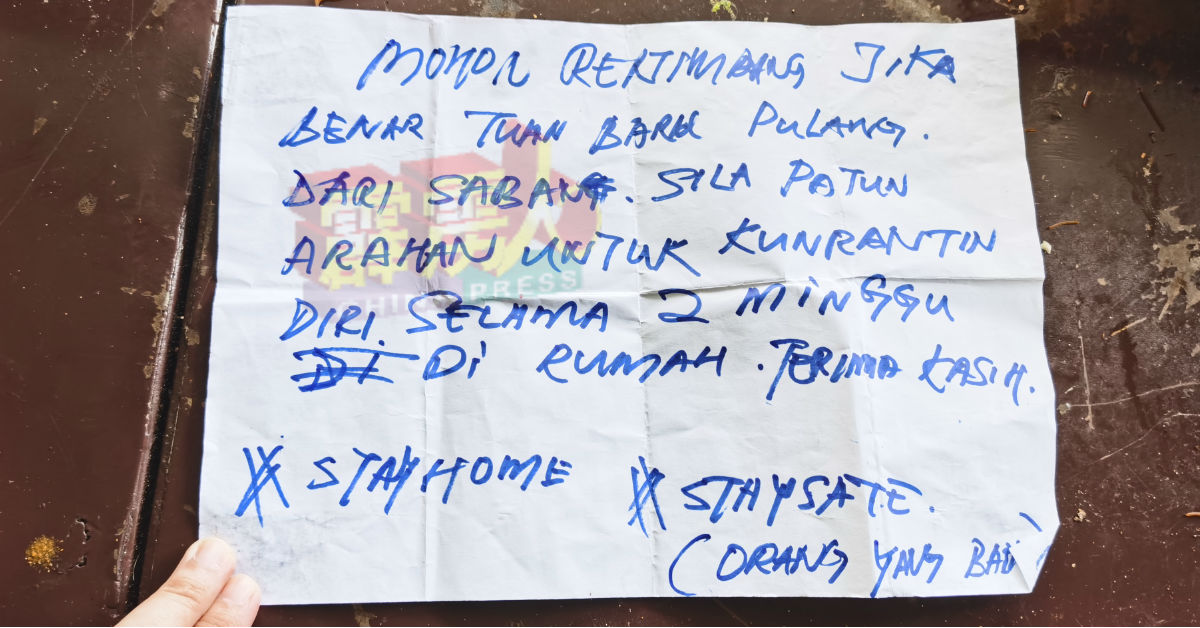 MOHON PERTIMBANG JIKA
BENAR TUAN BARU PULANG.
DARI SABANG. SILA PATUH
ARAHAN UNTUK KUNRANTIN
DIRI. SELAMA 2 MINGGU
DI RUMAH. TERIMA KASIH.
STAY HOME
STAY SAFE.
(ORANG YANG
CHINA PRESS